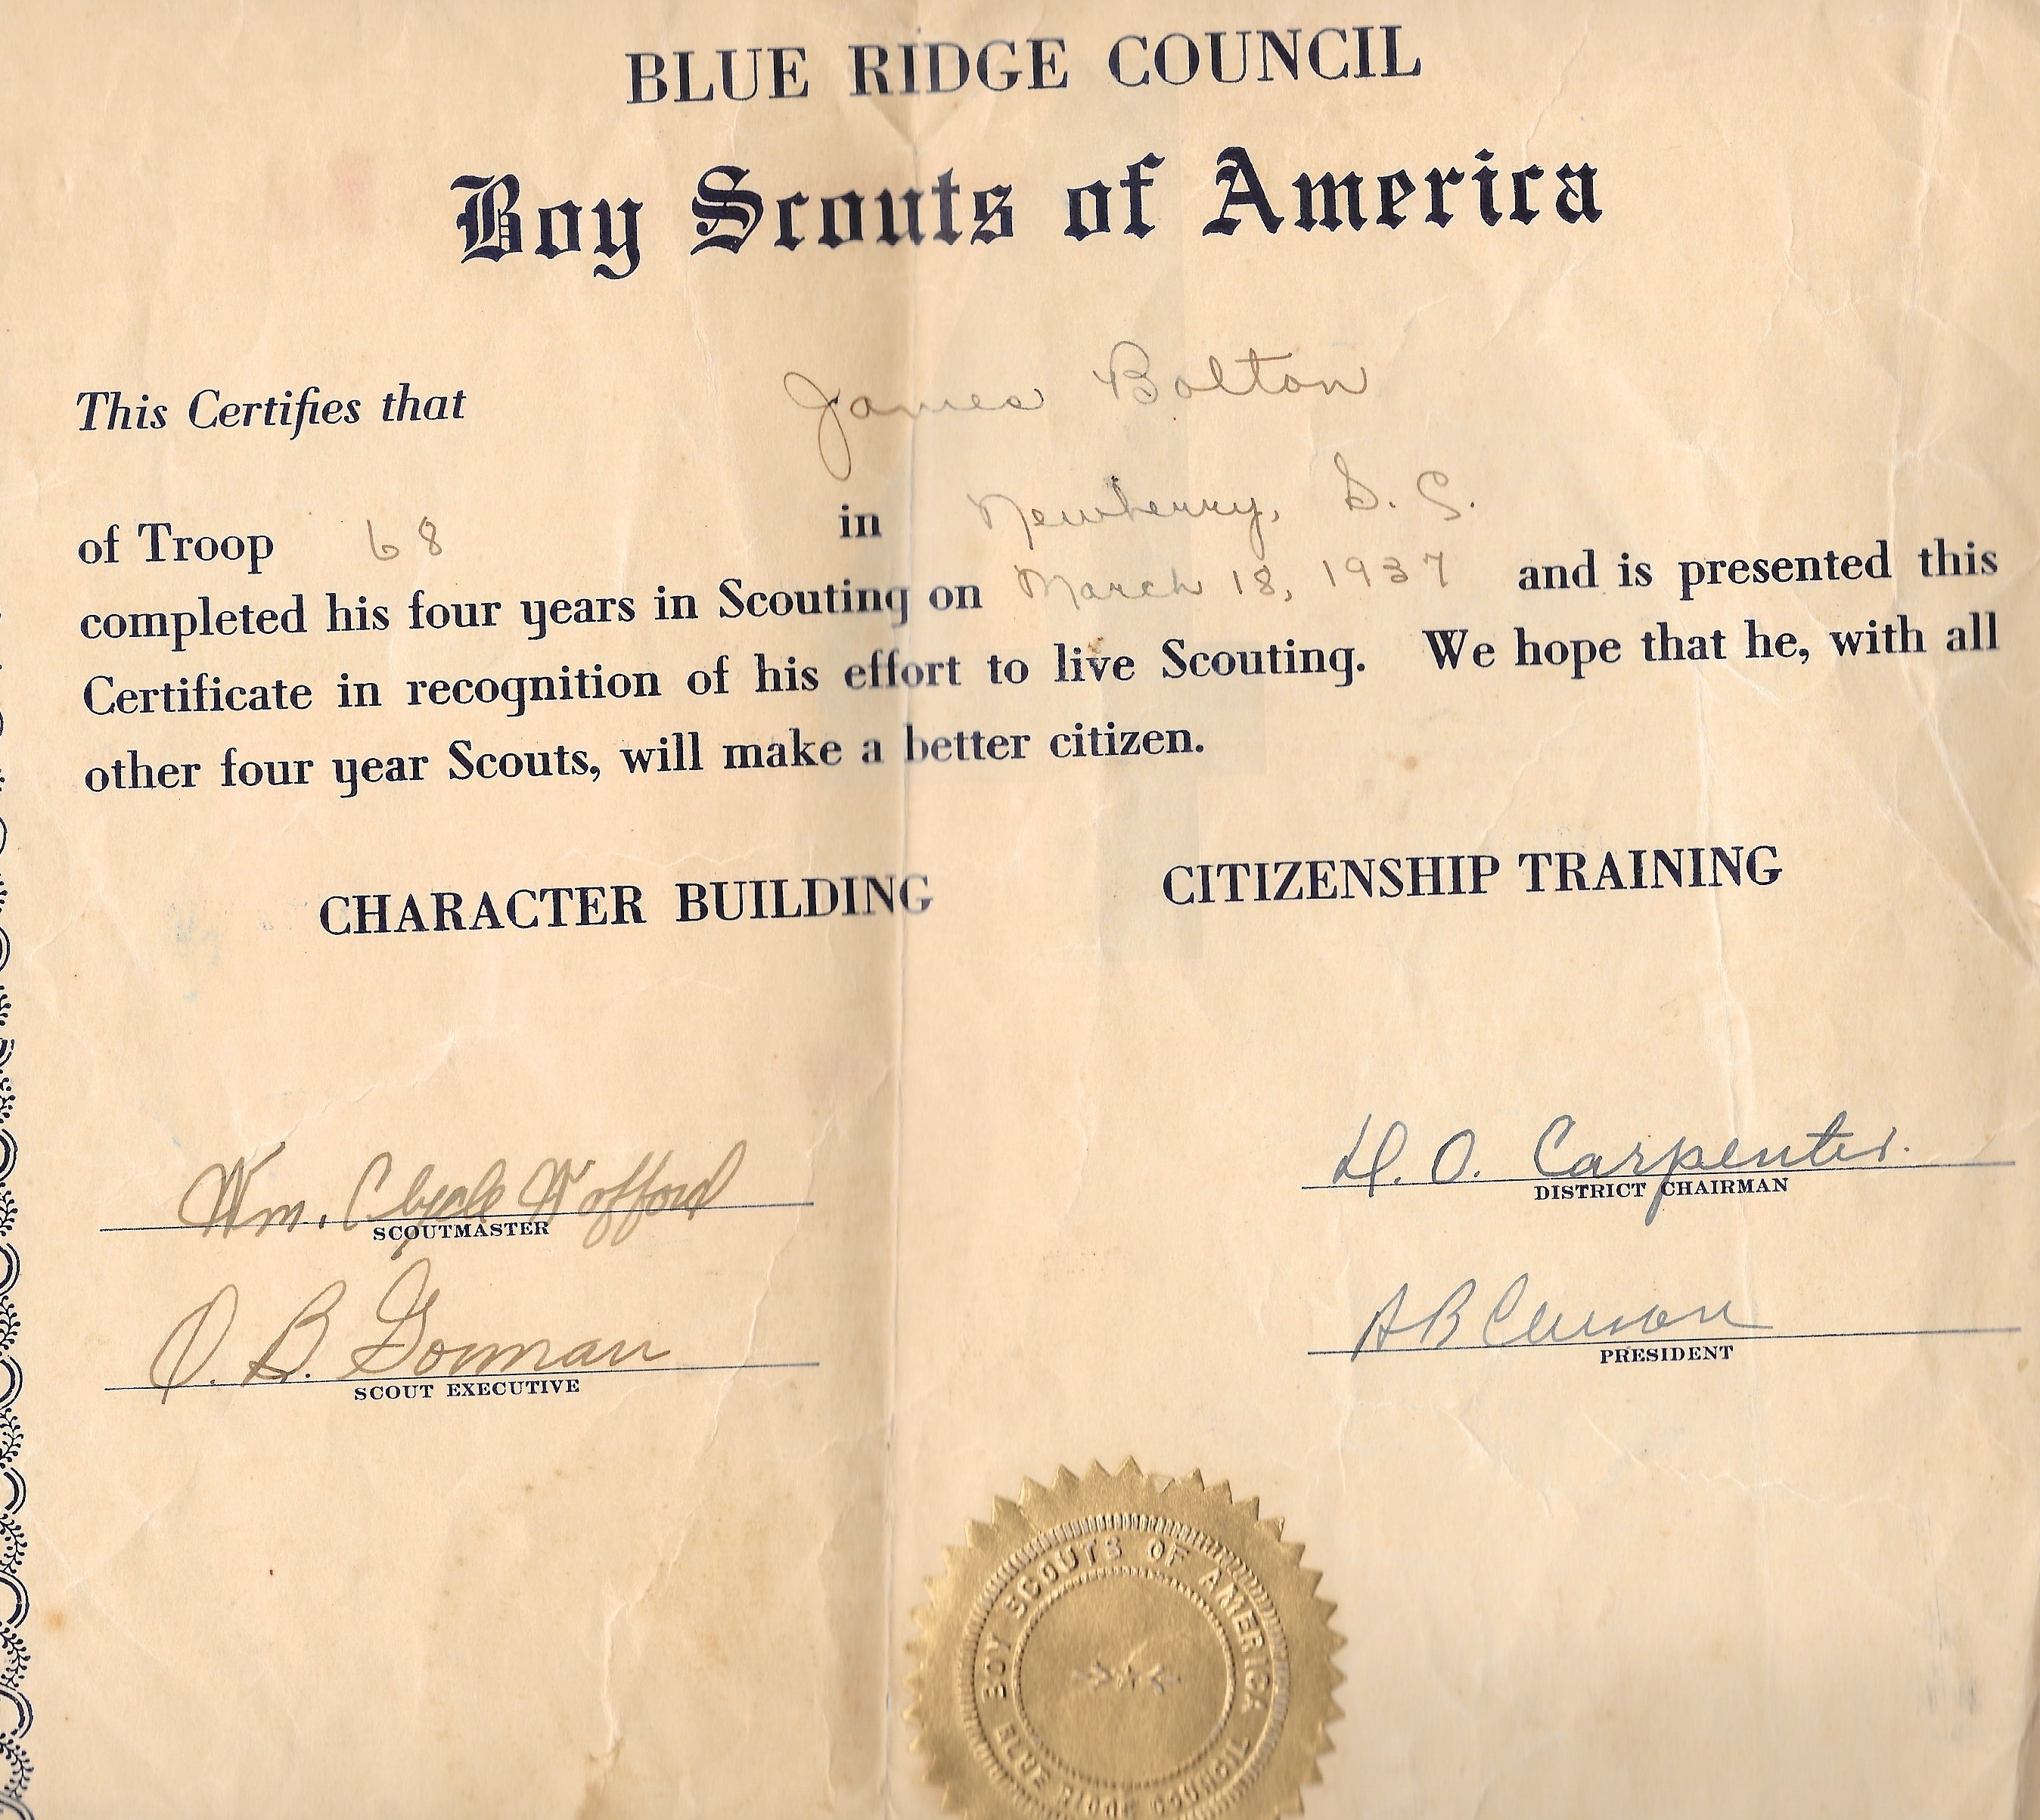 BLUE RIDGE COUNCIL
Boy Scouts of America
This Certifies that James Bolton
of Troop 68 in Newberry, S. C.
completed his four years in Scouting on March 18, 1937 and is presented this
Certificate in recognition of his effort to live Scouting. We hope that he, with all
other four year Scouts, will make a better citizen.
CHARACTER BUILDING CITIZENSHIP TRAINING
Wm. Clyde Wofford
SCOUTMASTER
H. O. Carpenter.
DISTRICT CHAIRMAN
O. B. Gorman
SCOUT EXECUTIVE
A B
PRESIDENT
BOY SCOUTS OF AMERICA
BLUE RIDGE COUNCIL